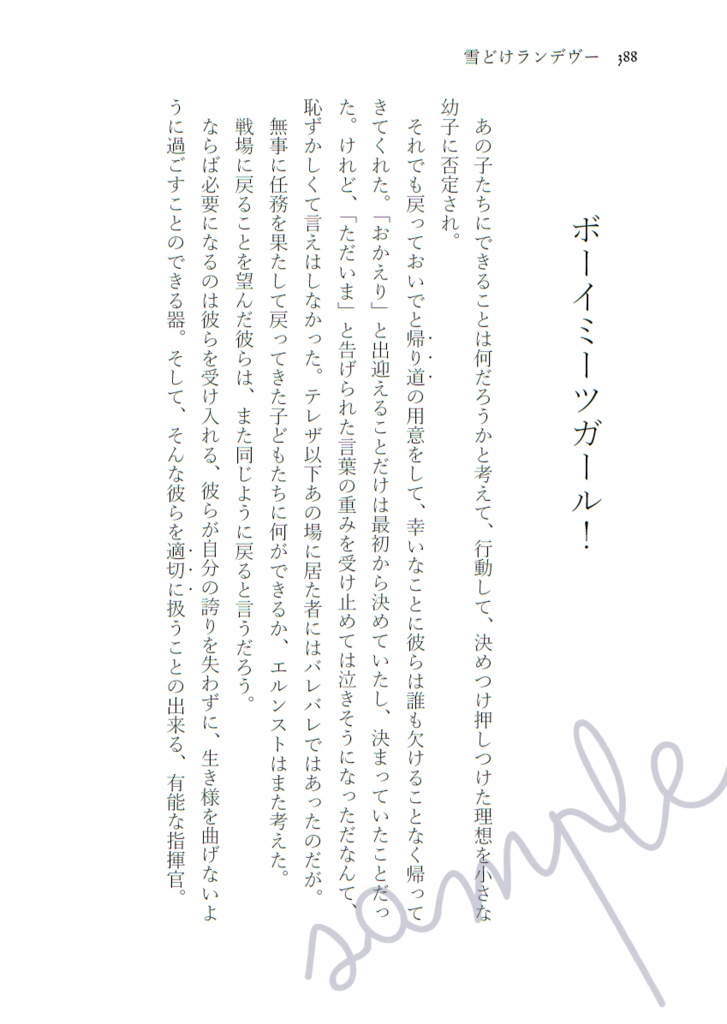 雪どけランデヴー 388
ボーイミーツガール！
あの子たちにできることは何だろうかと考えて、行動して、決めつけ押しつけた理想を小さな
幼子に否定され。
それでも戻っておいでと帰り道の用意をして、幸いなことに彼らは誰も欠けることなく帰って
きてくれた。「おかえり」と出迎えることだけは最初から決めていたし、決まっていたことだっ
た。けれど、「ただいま」と告げられた言葉の重みを受け止めては泣きそうになっただなんて、
恥ずかしくて言えはしなかった。テレザ以下あの場に居た者にはバレバレではあったのだが。
無事に任務を果たして戻ってきた子どもたちに何ができるか、エルンストはまた考えた。
戦場に戻ることを望んだ彼らは、また同じように戻ると言うだろう。
ならば必要になるのは彼らを受け入れる、彼らが自分の誇りを失わずに、生き様を曲げないよ
うに過ごすことのできる器。そして、そんな彼らを適切に扱うことの出来る、有能な指揮官。
sample